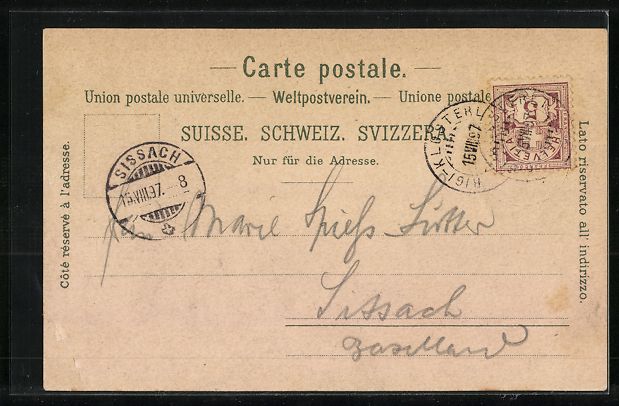 Carte postale.
Union postale universelle. — Weltpostverein. — Unione postale
SUISSE. SCHWEIZ. SVIZZERA.
Nur für die Adresse.
Côté réservé à l'adresse.
Lato riservato all' indirizzo.
SISSACH
15.VIII.97.
8
RIGI-KLÖSTERLI
15.VIII.97
HELVETIA
Marie Spiess-Sutter
Sissach
Baselland